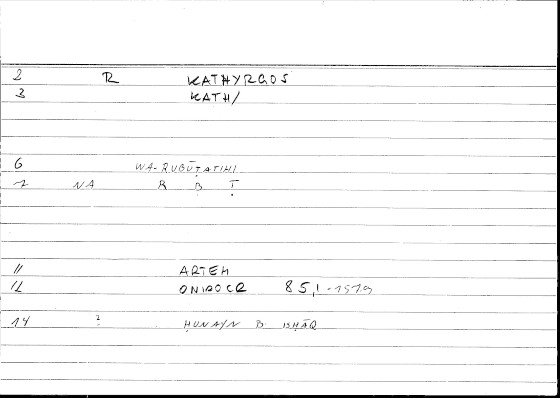 2 R KATHYRGOS
3 KATH/
6 WA-RUṬŪBATIHI
7 NA R Ṭ B
11 ARTEM
12 ONIROCR 85,1-
14 ? ḤUNAYN B ISḤĀQ